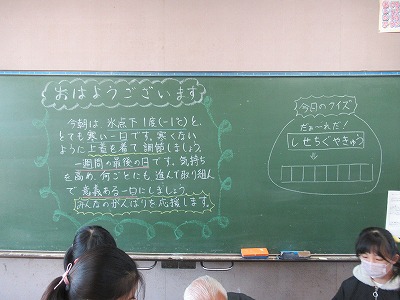 おはようございます
今朝は、氷点下1度(-1℃)と、
とても寒い一日です。寒くない
ように上着を着て調節しましょう。
一週間の最後の日です。気持ち
を高め、何ごとにも、進んで取り組ん
で意義ある一日にしましょう。
みんなのがんばりを応援します。
今日のクイズ
だぁ〜れだ！
しせちぐやきゅう